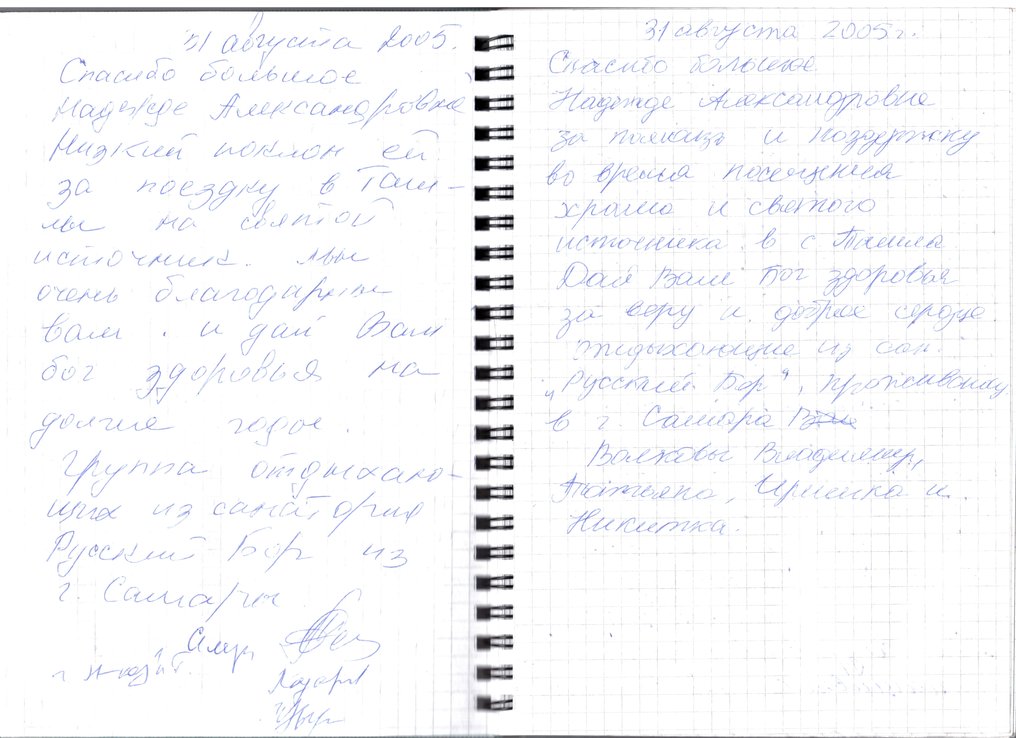 31 августа 2005.
Спасибо большое
Надежде Александровне
Низкий поклон ей
за поездку в Таш-
лы на святой
источник. мы
очень благодарны
вам. и дай Вам
бог здоровья на
долгие годы.
Группа отдыхаю-
щих из санатория
Русский Бор из
г. Самары
31 августа 2005 г.
Спасибо большое
Надежде Александровне
за помощь и поддержку
во время посещения
храма и святого
источника в с Ташла
Дай Вам Бог здоровья
за веру и доброе сердце.
Отдыхающие из сан.
"Русский Бор", проживающ
в г. Самара
Волковы Владимир,
Татьяна, Иришка и
Никитка.